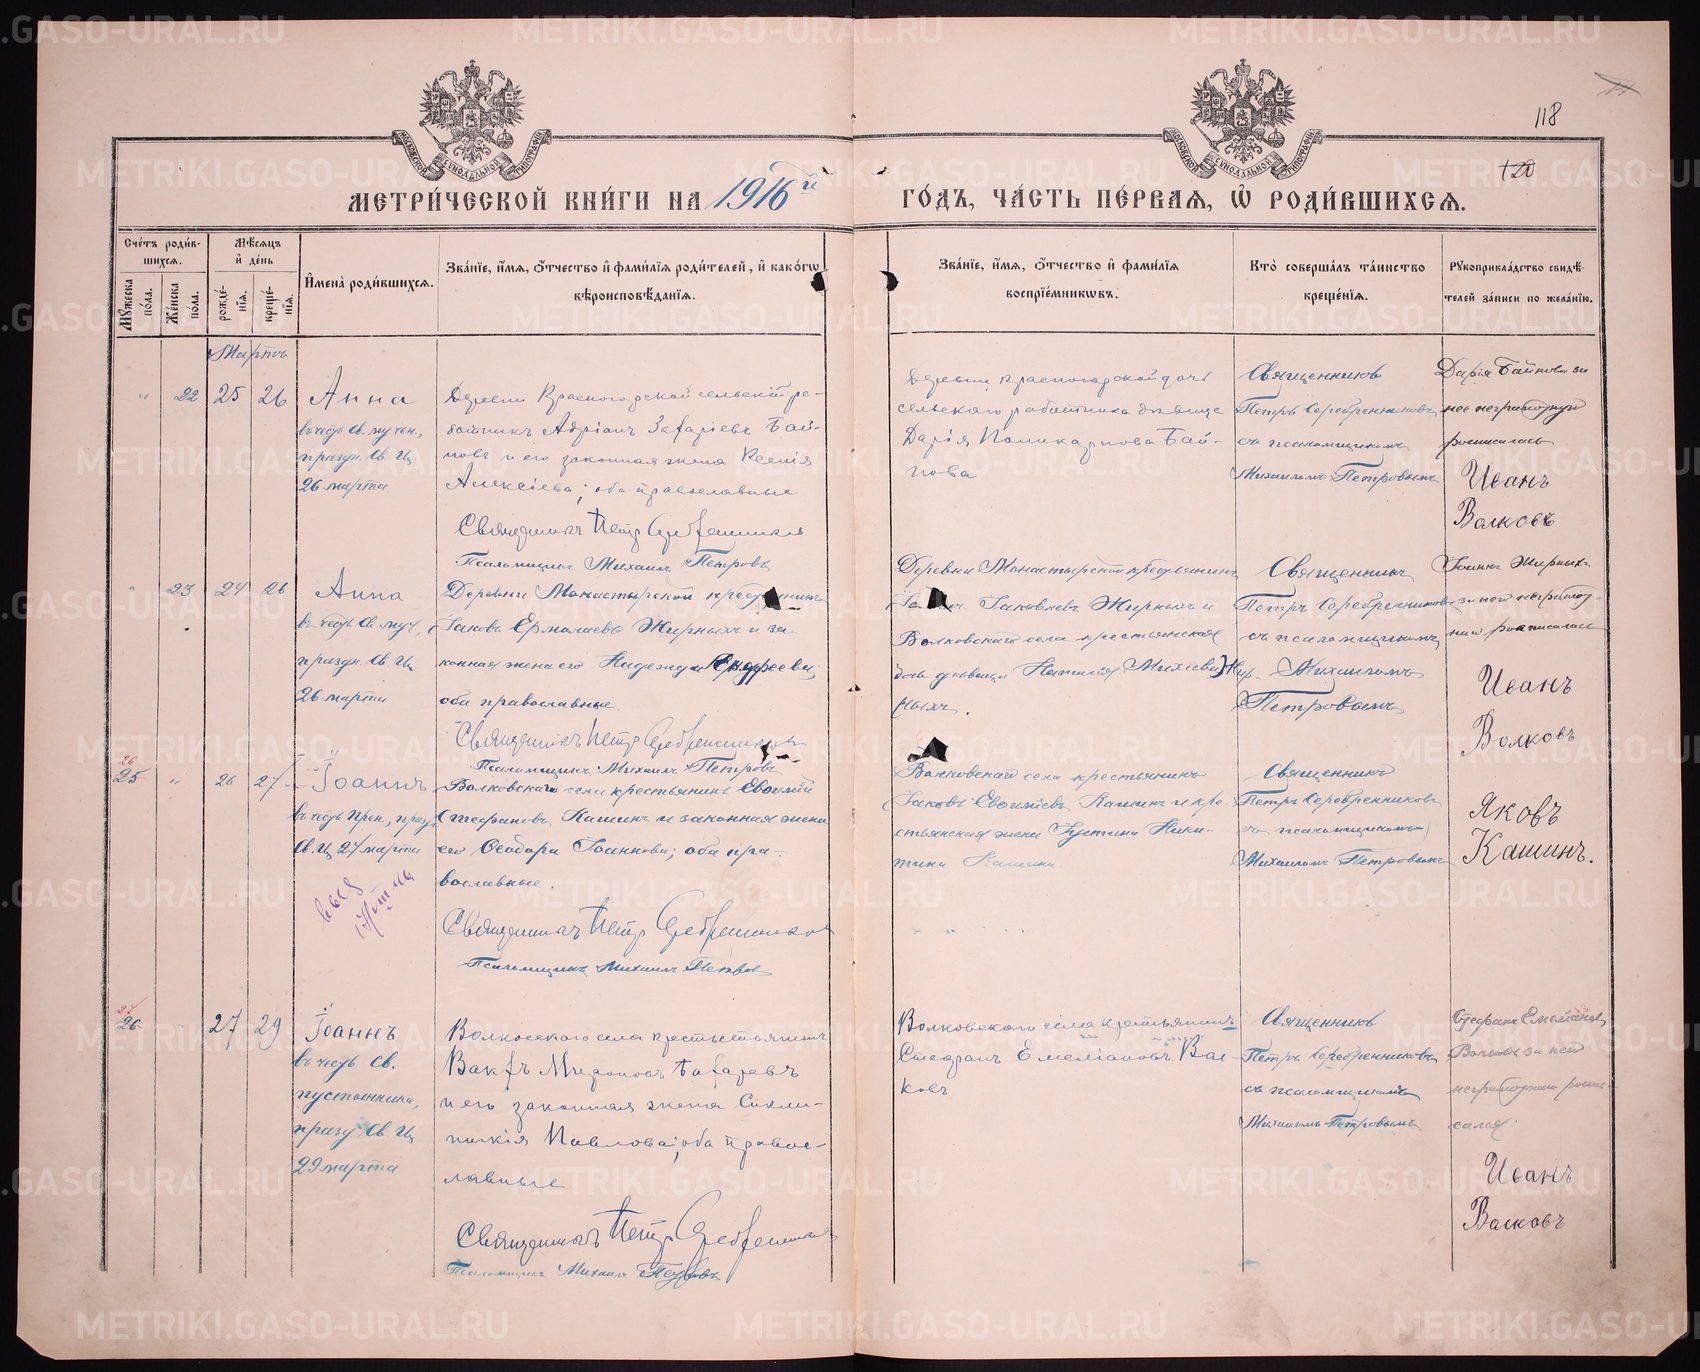 118
120
МЕТРИ́ЧЕСКОЙ КНИ́ГИ НА 1916й ГО́ДЪ, ЧА́СТЬ ПЕ́РВАѦ, Ѽ РОДИ́ВШИХСѦ.
Сче́тъ роди́вшихсѧ.
Мꙋ́жеска по́ла.
Же́нска по́ла.
Мѣ́сѧцъ и҆ де́нь
рожде́нїѧ.
креще́нїѧ.
И҆мена̀ роди́вшихсѧ.
Зва́нїе, и҆́мѧ, ѻ҆́тчество и҆ фами́лїѧ роди́телей, и҆ како́гѡ
вѣроисповѣ́данїѧ.
Зва́нїе, и҆́мѧ, ѻ҆́тчество и҆ фами́лїѧ
воспрїе́мникѡвъ.
Кто̀ соверша́лъ та́инство
креще́нїѧ.
Рꙋкоприкла́дство свидѣ́-
телей за́писи по жела́нїю.
Мартъ
" 22 25 26
Анна
въ честь св. мучен.,
праздн. Св. Ц.
26 марта
Деревни Красногорской сельскій ра-
ботникъ Адріанъ Захаріевъ Бай-
новъ и его законная жена Ксенія
Алексіева; оба православные
Священникъ Петръ Серебренниковъ
Псаломщикъ Михаилъ Петровъ
Деревни Красногорской дочь
сельскаго работника дѣвица
Дарія Поликарпова Бай-
нова
Священникъ
Петръ Серебренниковъ
съ псаломщикомъ
Михаиломъ Петровымъ
Дарія Байнова за
нее неграмотную
росписалась
Иванъ
Волковъ
" 23 24 26
Анна
въ честь св. муч.,
праздн. Св. Ц.
26 марта
Деревни Монастырской крестьянинъ
Іаковъ Ермолаевъ Жирныхъ и за-
конная жена его Надежда Андреева;
оба православные.
Священникъ Петръ Серебренниковъ
Псаломщикъ Михаилъ Петровъ
Деревни Монастырской крестьянинъ
Іаковлевъ Жирныхъ и
Волковскаго села крестьянская
дочь дѣвица Наталія Михеева Жир-
ныхъ.
Священникъ
Петръ Серебренниковъ
съ псаломщикомъ
Михаиломъ
Петровымъ
Іоаннъ Жирныхъ
за него неграмот-
наго росписался
Иванъ
Волковъ
26
25 " 26 27
Іоаннъ
въ честь Преп., празд.
Св. Ц. 27 марта
Волковскаго села крестьянинъ Евѳимій
Стефановъ Кашинъ и законная жена
его Ѳеодора Іоаннова; оба пра-
вославные.
Священникъ Петръ Серебренниковъ
Псаломщикъ Михаилъ Петровъ
Волковскаго села крестьянинъ
Іаковъ Евѳиміевъ Кашинъ и кре-
стьянская жена Іустина Ники-
тина Кашина.
Священникъ
Петръ Серебренниковъ
съ псаломщикомъ
Михаиломъ Петровымъ
Яковъ
Кашинъ.
27
26 27 29
Іоаннъ
въ честь Св.
пустынника,
празд. Св. Ц.
29 марта
Волковскаго села крестьянинъ
и его законная жена Сикли-
тикія Павлова; оба правос-
лавные
Священникъ Петръ Серебренниковъ
Псаломщикъ Михаилъ Петровъ
Волковскаго села крестьянинъ
Стефанъ Емеліановъ Вол-
ковъ
Священникъ
Петръ Серебренниковъ
съ псаломщикомъ
Михаиломъ Петровымъ
Стефанъ Емеліановъ
Волковъ за него
неграмотнаго роспи-
сался
Иванъ
Волковъ